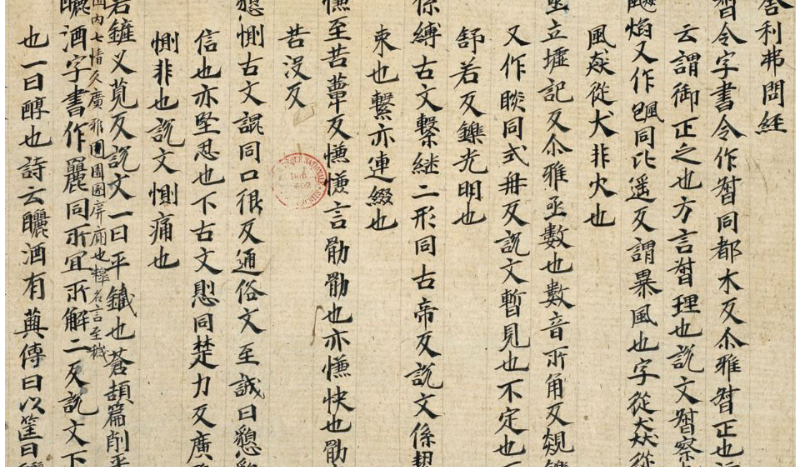 舍利弗問經
督今字書今作督同都木反尒雅督正也
云謂御正之也方言督理也說文督察
飈焰又作飊同比遥反謂暴風也字從猋從
風猋從犬非火也
亟立墟記反尒雅亟数也數音所角反覢
又作睒同式冉反說文暫見也不定也
舒若反鑠光明也
係縛古文繫継二形同古帝反說文係
束也繫亦連綴也
慊至苦蕈反慊慊言劬劬也亦慊快也劬
苦没反
懇惻古文詪同口很反通俗文至誠曰懇
信也亦堅忍也下古文恖同楚力反廣
惻非也說文惻痛也
若鏟义莧反說文一曰平鐵也蒼頡篇削平
内七情久廣雅圊圂圂屏廁也釋名言至穢
曬酒字書作麗同所宜所解二反說文下
也一曰醇也詩云曬酒有藇傳曰以筐曰